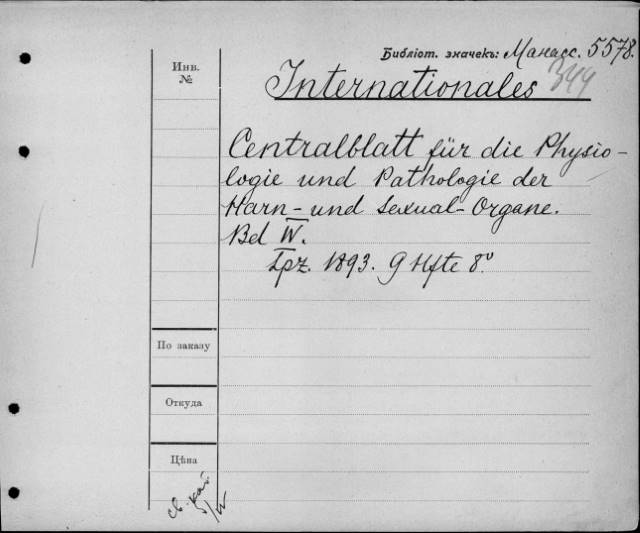 Библіот. значекъ: Манасс. 5578.
344
Инв.
№
Internationales
Centralblatt für die Physio-
logie und Pathologie der
Harn- und Sexual-Organe.
Bd IV.
Lpz. 1893. 9 Hfte 8º
По заказу
Откуда
Цѣна